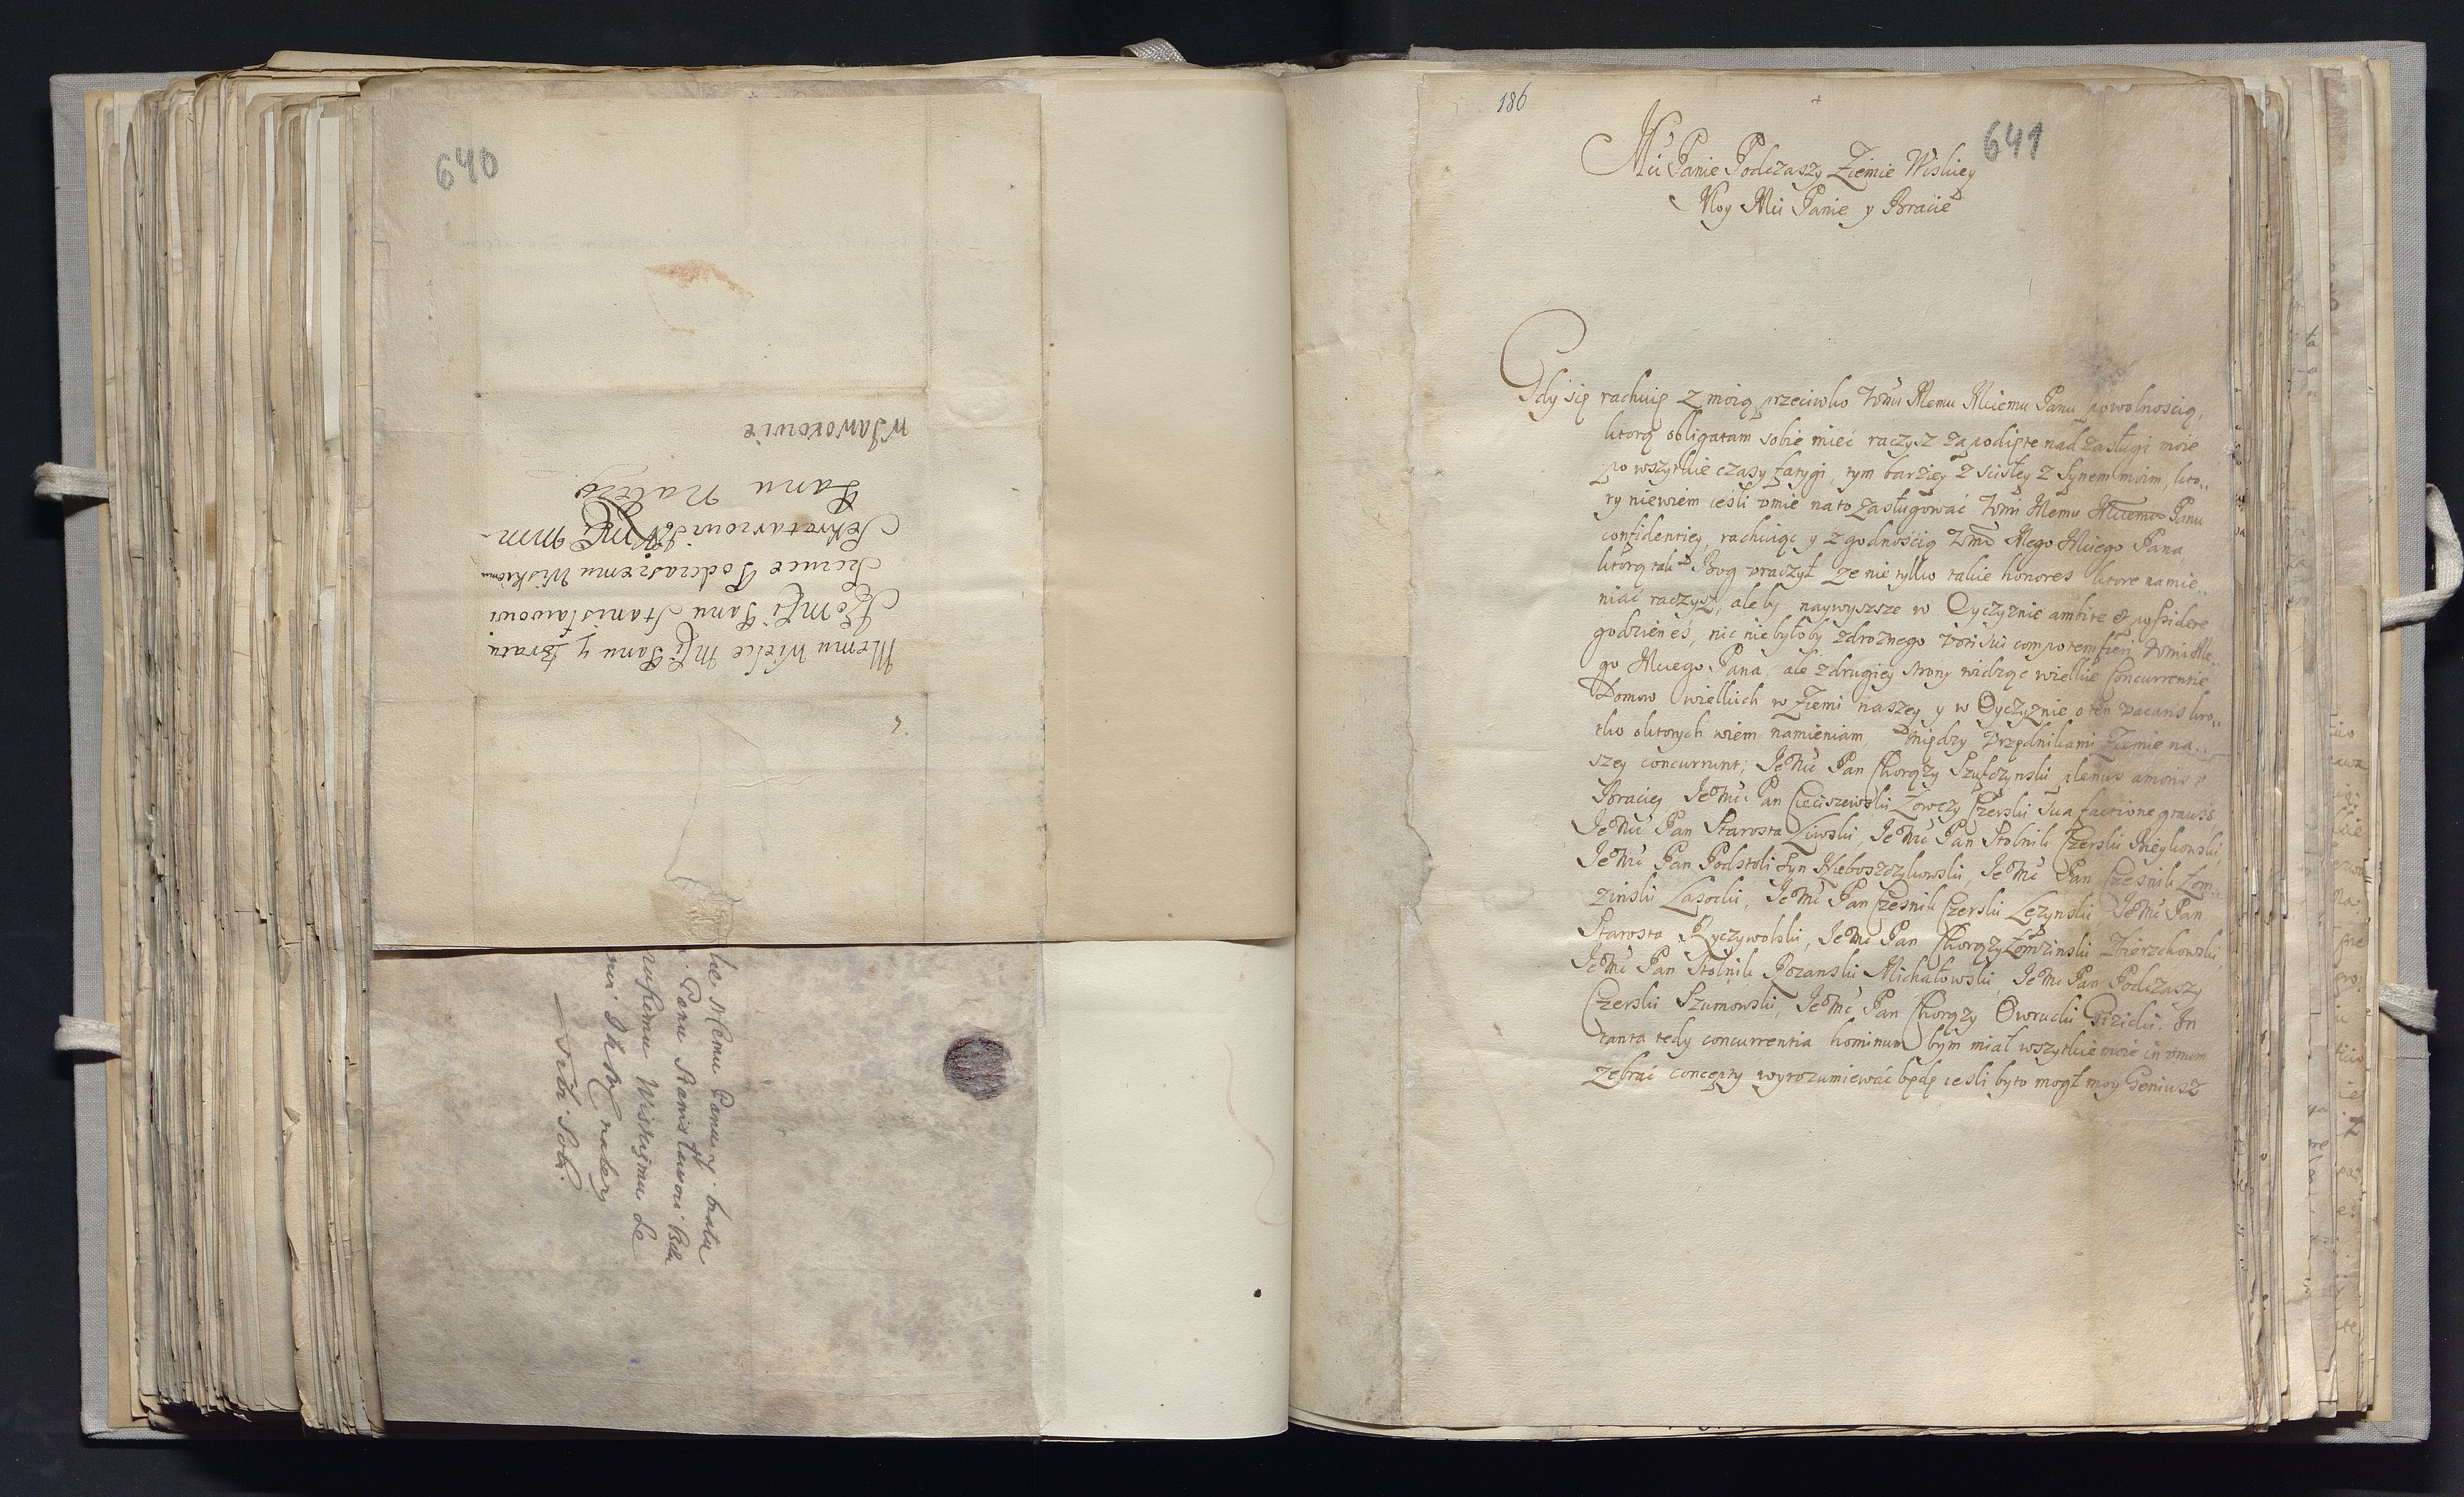 640
Memu Wielce Mći Panu y Bratu
Jeo Mći Panu Stanisławowi
Podczaszemu Wiskiemu
Sekretarzowi JKMći mm
Panu należy
w Jaworowie
Memu Panu y bratu
Panu Stanisławowi
Wiskiemu
należy
186
641
Mći Panie Podczaszy Ziemie Wiskiey
Moy Mći Panie y Bracie
Gdy się rachuię z moią przeciwko WMći Memu Mćiemu Panu powolnoscią,
ktorą obligatam sobie mieć raczysz za podięte nad zasługi moie
po wszytkie czasy fatygi, tym barziey z scisłey z Synem moim, kto..
ry niewiem iesli umie na to zasługować WMći Memu Mćiemu Panu
confidentiey, rachuiąc y z godnoscią WMći Mego Mćiego Pana
ktorą tak Bog uraczył, ze nie tylko takie honores ktore namie..
niać raczysz, ale by naywyzsze w Oyczyznie ambire et possidere
godzien eś, nic nie byłoby zdroznego voti sui compotem fieri WMći Me..
go Mćiego Pana, ale z drugiey strony widząc wielkie Concurrentie
Domow wielkich w Ziemi naszey y w Oyczyznie o ten vacans kro..
tko o ktorych wiem namieniam, Między Urzędnikami Ziemie na..
szey concurrunt; JeoMć Pan Chorązy Szulczynski plenus amoris u
Braciey, JeoMć Pan Cieciszewski Łowczy Czerski sua factione gravis
JeoMć Pan Starosta Liwski, JeoMć Pan Stolnik Czerski
JeoMć Pan Podstoli Syn Nieboszczykowski, JeoMć Pan Czesnik Łom..
zinski Lasocki, JeoMć Pan Czesnik Czerski Lezynski JeoMć Pan
Starosta Ryczywolski, JeoMć Pan Chorązy Łomzinski Zbierzchowski,
JeoMć Pan Stolnik Rozanski Michałowski, JeoMć Pan Podczaszy
Czerski Szumowski, JeoMć Pan Chorązy Owrucki In
tanta tedy concurrentia hominum bym miał wszytkie moie in unum
zebrać concepty wyrozumiewać będę iesli by to mogł moy Geniusz